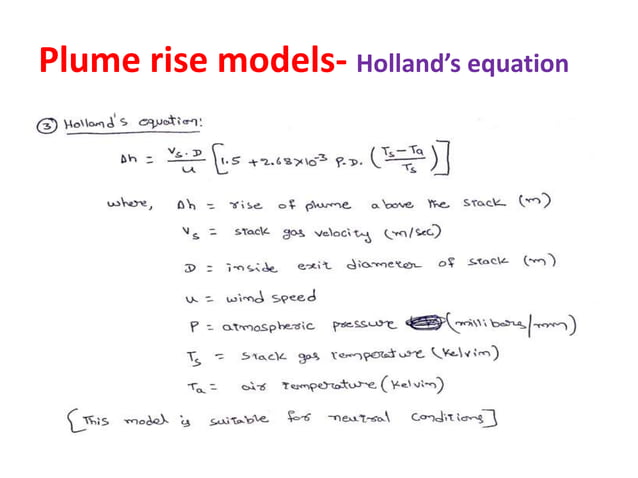 Plume rise models- Holland's equation
③ Holland's equation:
Δh = Vs.D/u [1.5 + 2.68×10⁻³ P.D. (Ts-Ta/Ts)]
where, Δh = rise of plume above the stack (m)
Vs = stack gas velocity (m/sec)
D = inside exit diameter of stack (m)
u = wind speed
P = atmospheric pressure (millibars/mm)
Ts = stack gas temperature (Kelvin)
Ta = air temperature (Kelvin)
[This model is suitable for neutral conditions]